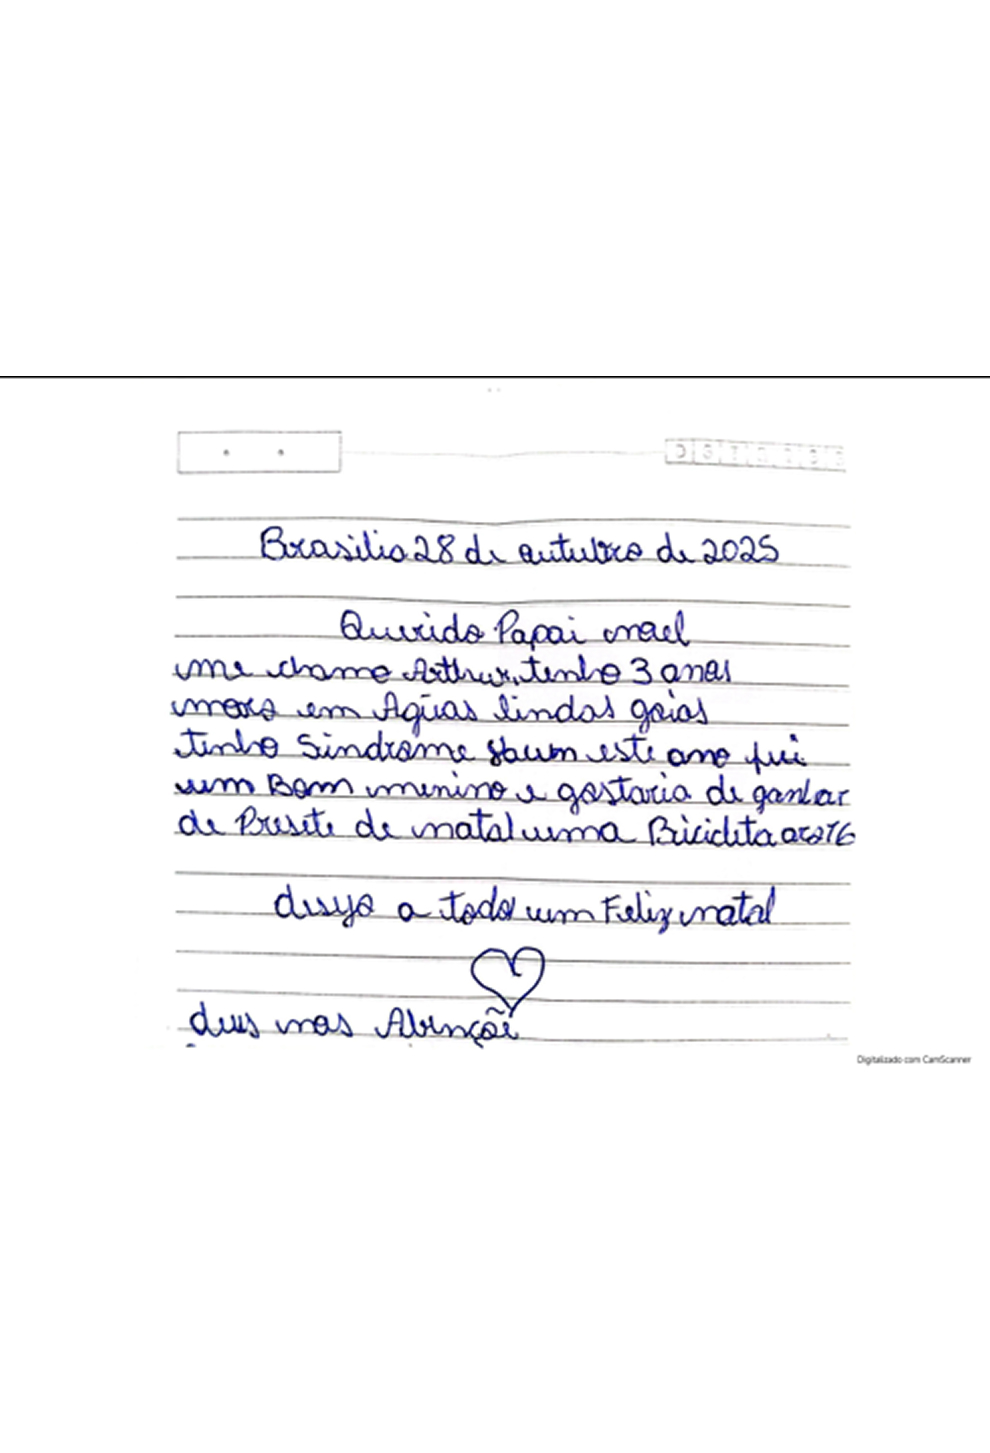 Brasilia 28 de outubro de 2025
Querido Papai noel
me chamo Arthur, tenho 3 anos
moro em Agúas lindas goias
tenho Sindrome Daum este ano fui
um Bom menino e gostaria de ganhar
de Presete de natal uma Bricicleta aro 16
desejo a todos um Feliz natal
deus nos Abençõe
Digitalizado com CamScanner